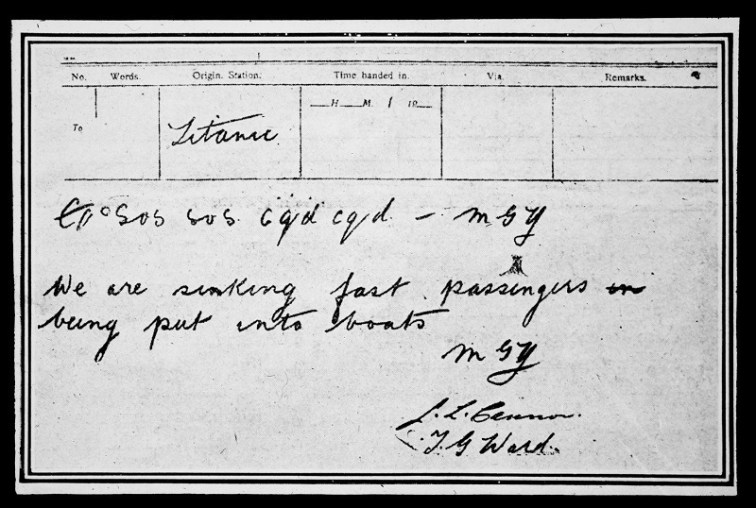 No. Words. Origin. Station. Time handed in. Via. Remarks.
To Titanic H. M. 19
SOS SOS cqd cqd - MGY
We are sinking fast passengers in
being put into boats
MGY
T G Ward.